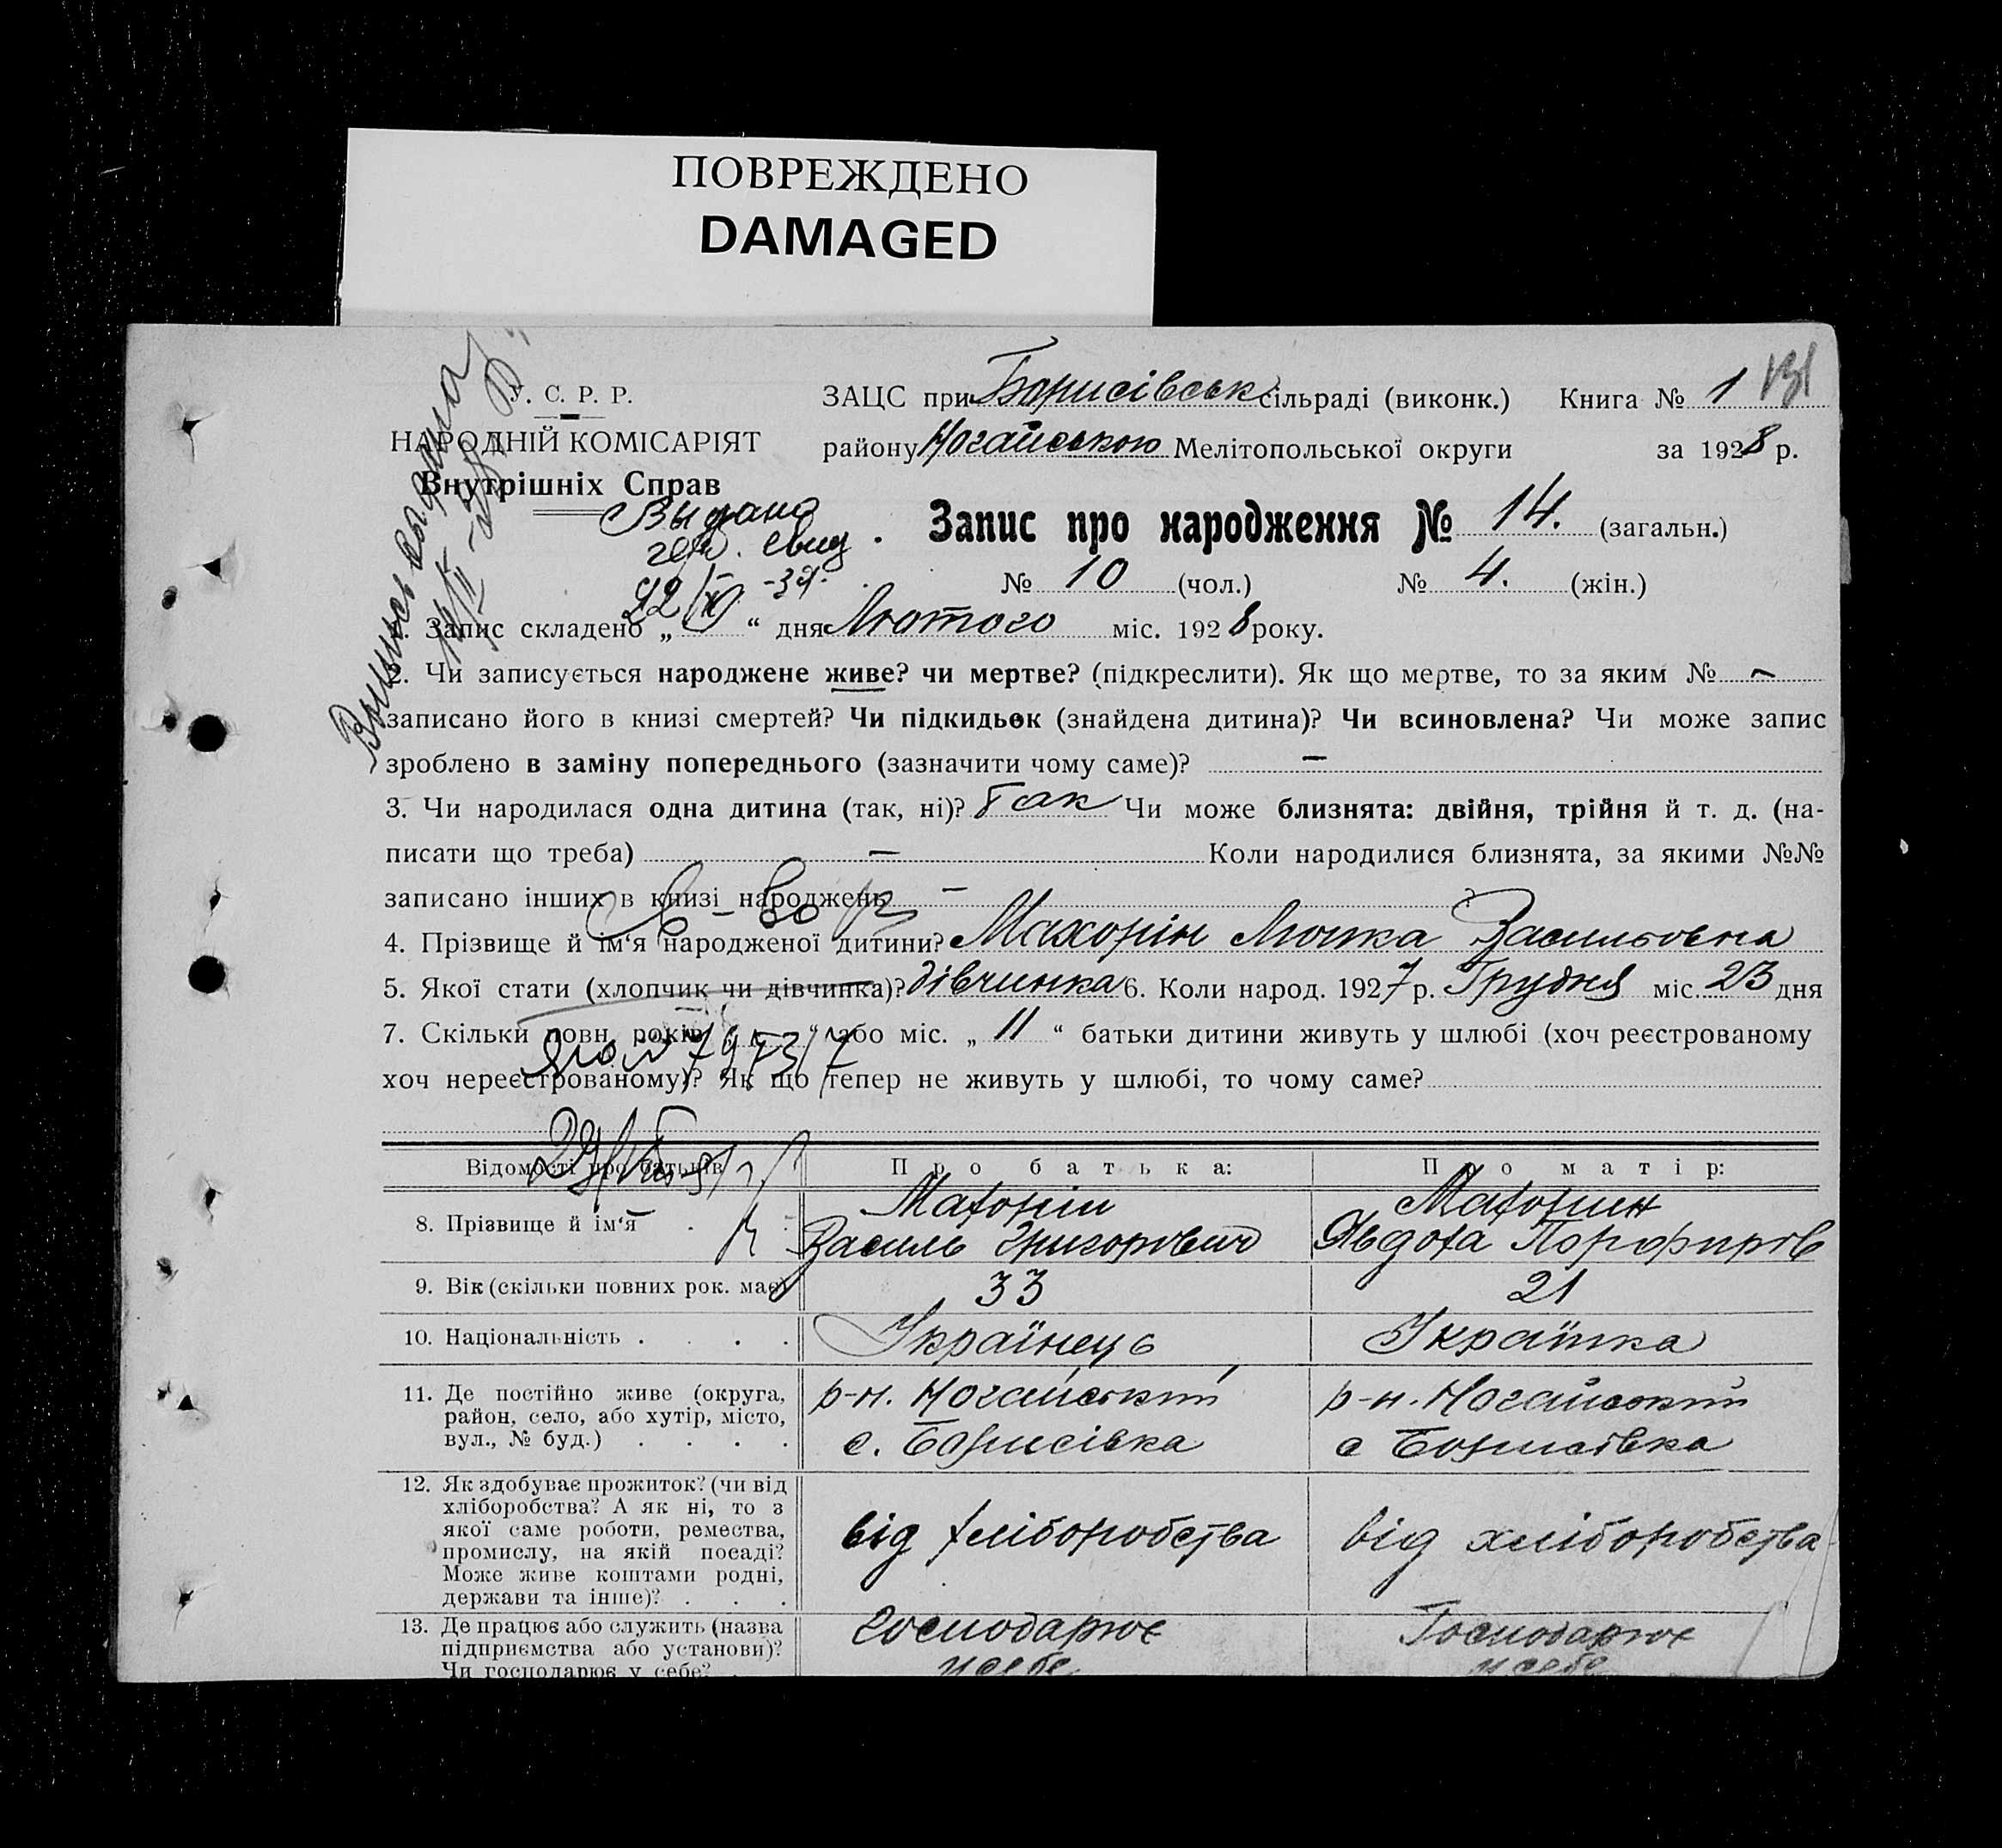 ПОВРЕЖДЕНО
DAMAGED
У. С. Р. Р.
НАРОДНІЙ КОМІСАРІЯТ
Внутрішніх Справ
Выпись выдана
Выдано
свид
22
ЗАЦС при Борисівськ сільраді (виконк.) Книга № 1 131
району Ногайською Мелітопольської округи за 1928 р.
Запис про народження № 14. (загальн.)
№ 10 (чол.) № 4. (жін.)
1. Запис складено „ “ дня Лютого міс. 1928 року.
2. Чи записується народжене живе? чи мертве? (підкреслити). Як що мертве, то за яким № —
записано його в книзі смертей? Чи підкидьок (знайдена дитина)? Чи всиновлена? Чи може запис
зроблено в заміну попереднього (зазначити чому саме)? —
3. Чи народилася одна дитина (так, ні)? Так Чи може близнята: двійня, трійня й т. д. (на-
писати що треба) — Коли народилися близнята, за якими №№
записано інших в книзі народжень —
4. Прізвище й ім‘я народженої дитини? Махорін Васильовна
5. Якої стати (хлопчик чи дівчинка)? дівчинка 6. Коли народ. 1927 р. Грудня міс. 23 дня
7. Скільки повн. років „ “ або міс. „ 11 “ батьки дитини живуть у шлюбі (хоч реєстрованому
хоч нереєстрованому)? Як що тепер не живуть у шлюбі, то чому саме?
Відомості про батьків Про батька: Про матір:
8. Прізвище й ім‘я Махорин Махорин
Василь Григорович Явдоха Порфирів
9. Вік (скільки повних рок. має) 33 21
10. Національність . . . . Українець Українка
11. Де постійно живе (округа, район, село, або хутір, місто, вул., № буд.) . . . .
р-н. Ногайський р-н. Ногайський
с. Борисівка с Борисівка
12. Як здобуває прожиток? (чи від
хліборобства? А як ні, то з
якої саме роботи, ремества,
промислу, на якій посаді?
Може живе коштами родні,
держави та інше)? . . .
від хліборобства від хліборобства
13. Де працює або служить (назва
підприємства або установи)?
Чи господарює у себе? .
господарює Господарює
у себе у себе